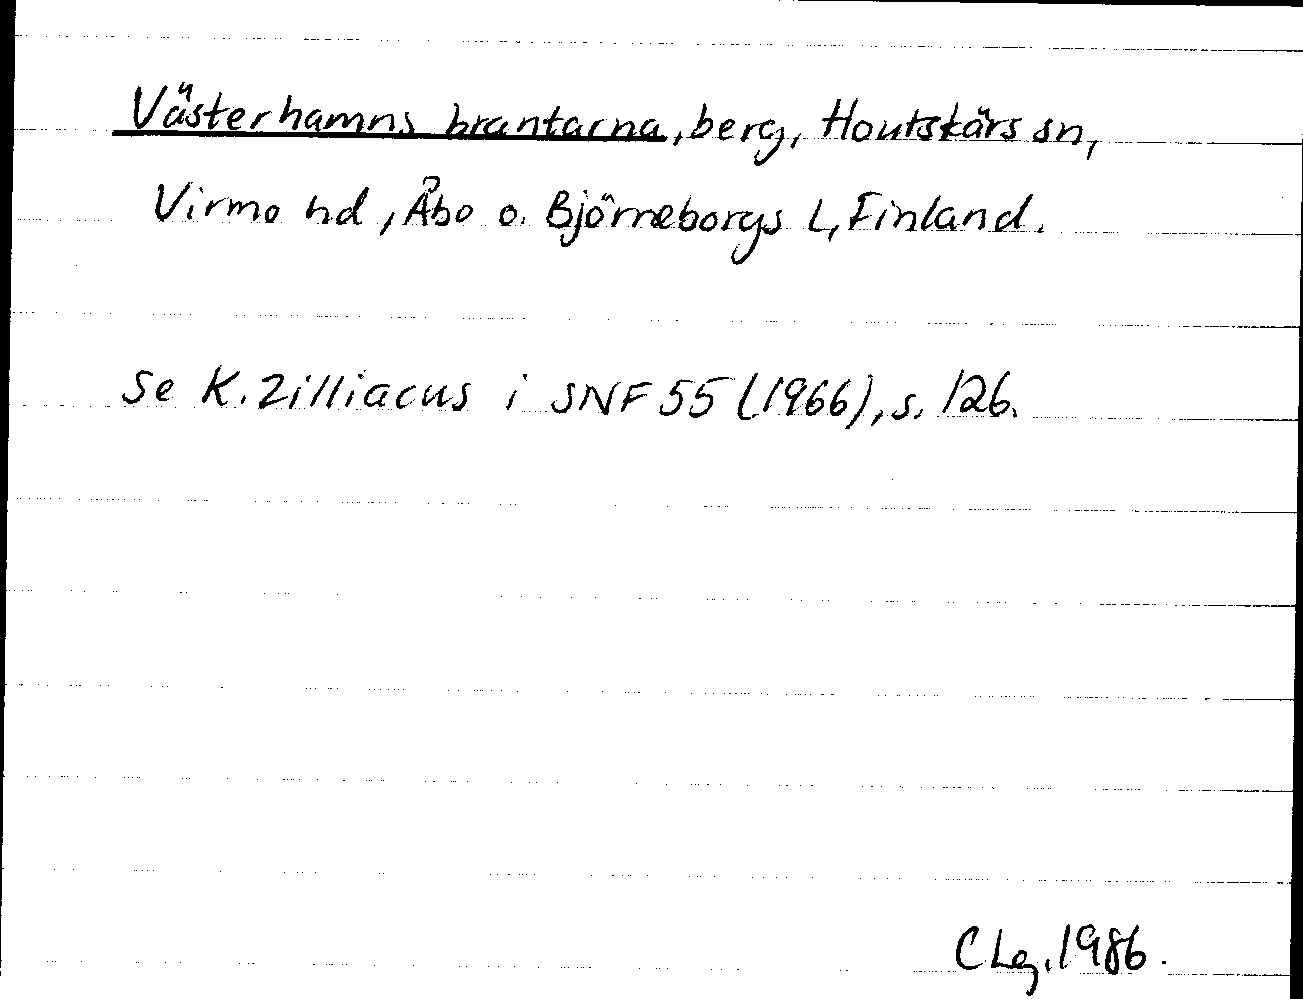 Västerhamns brantarna, berg, Houtskärs sn,
Virmo hd, Åbo o. Björneborgs L, Finland.
Se K. Zilliacus i SNF 55 (1966), s. 126.
C Lg. 1986.